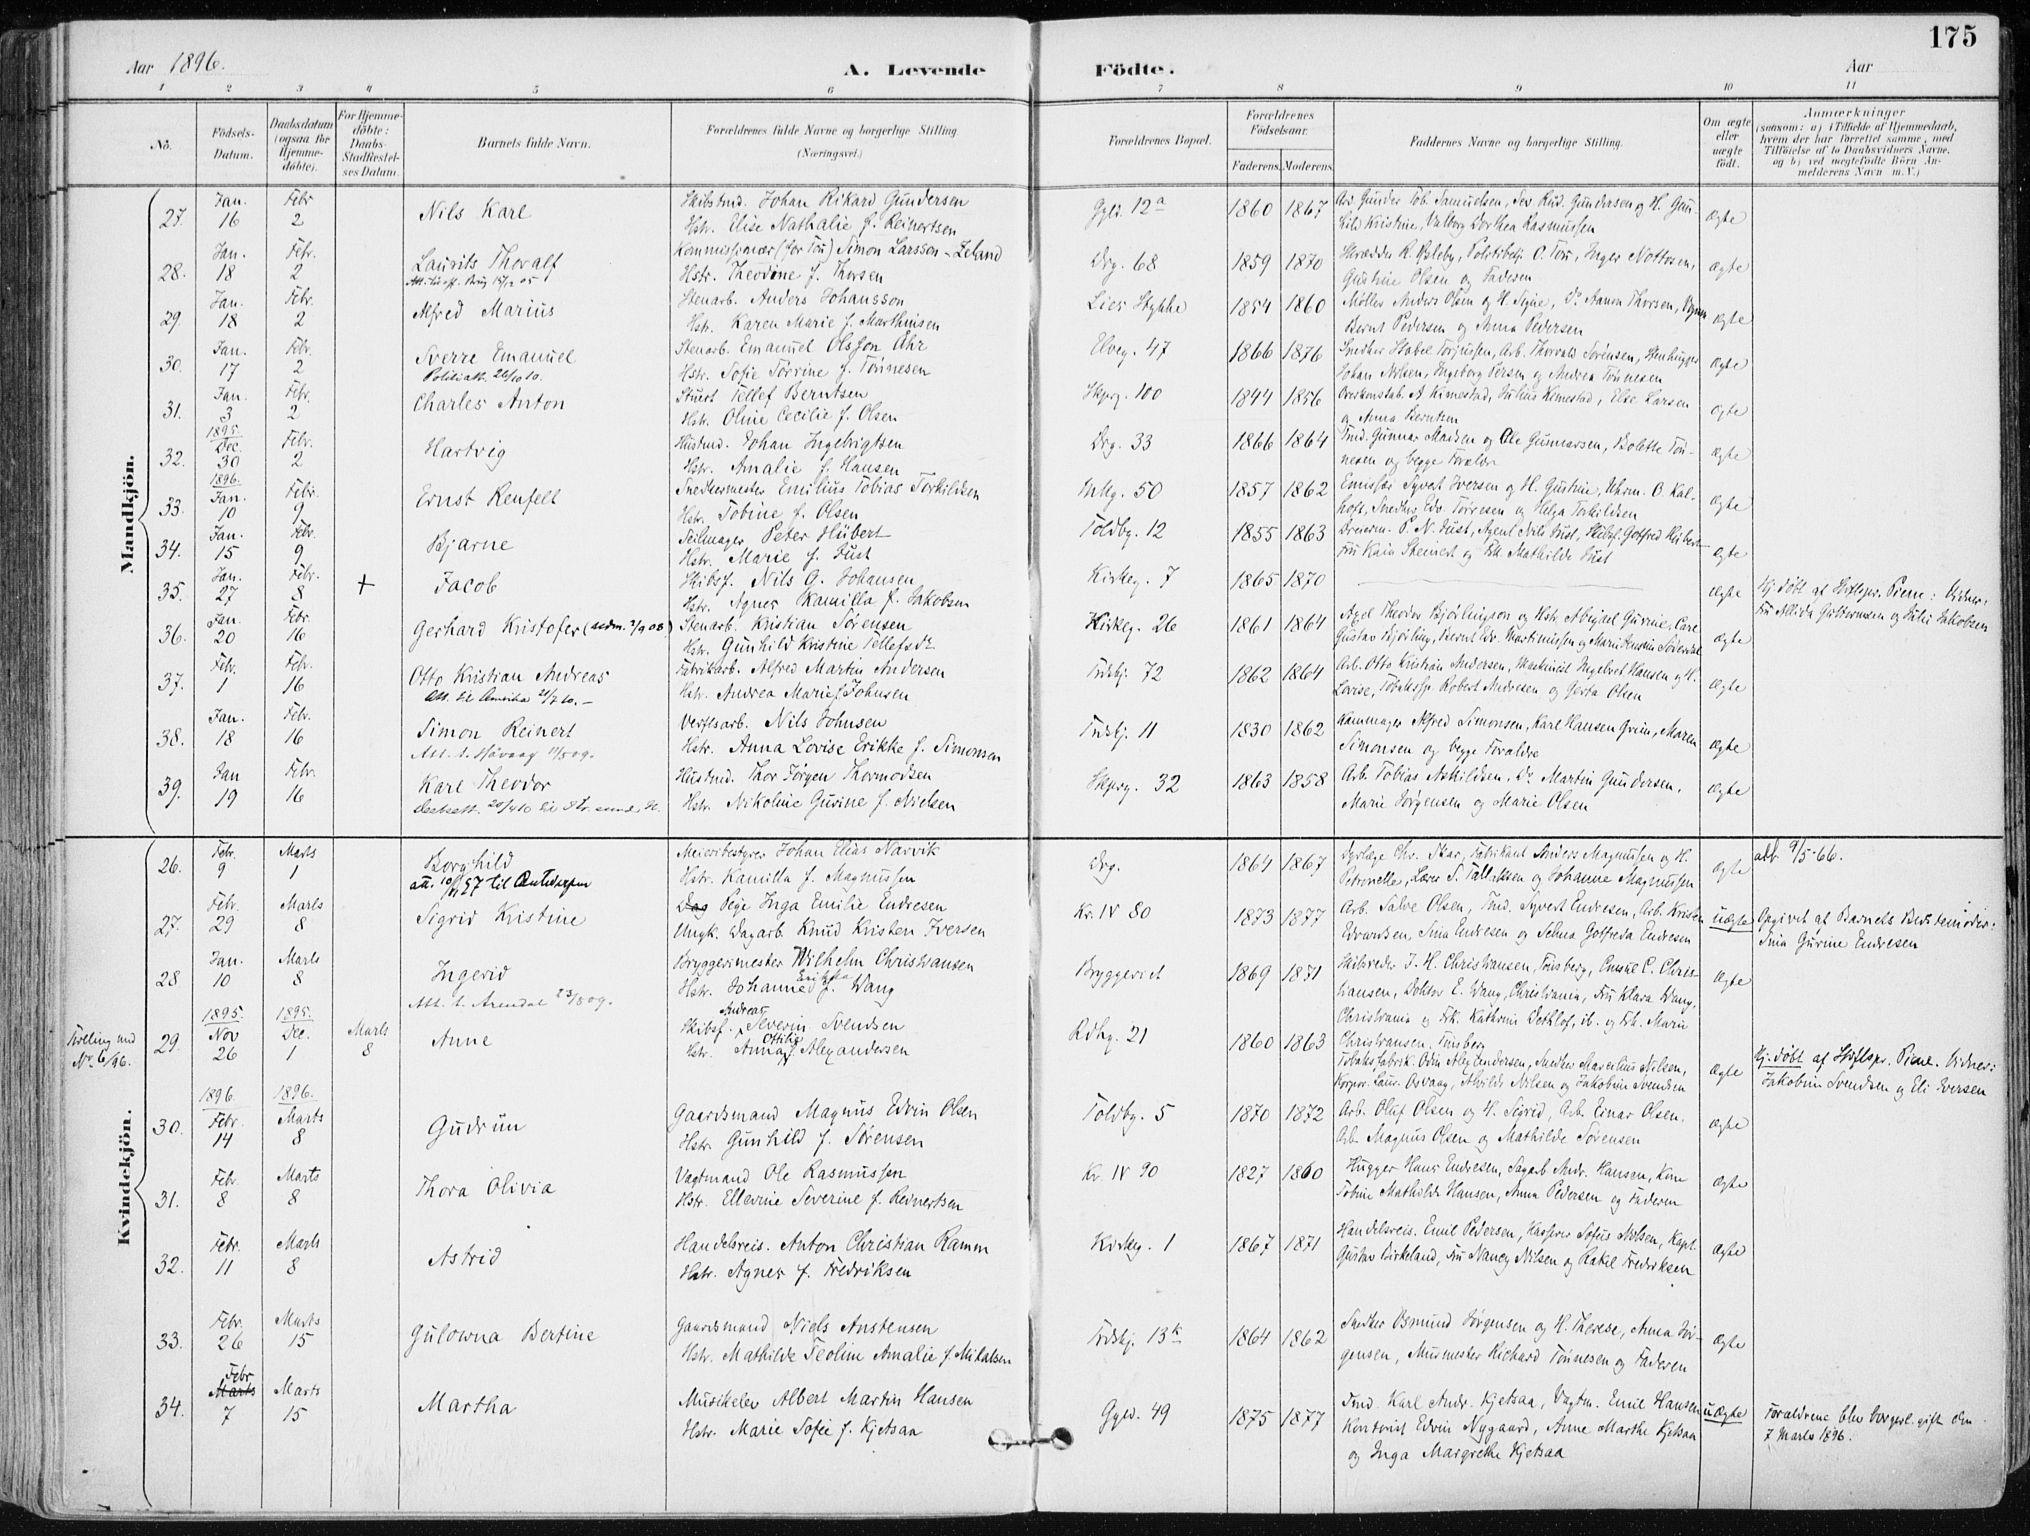 175
Aar 1896.
A. Levende
Födte.
Aar
1 2 3 4 5 6 7 8 9 10 11
No.
Födsels-Datum.
Daabsdatum (ogsaa for Hjemme-döbte).
For Hjemme-döbte: Daabs-Stadfæstel-ses Datum.
Barnets fulde Navn.
Forældrenes fulde Navne og borgerlige Stilling.
(Næringsvei.)
Forældrenes Bopæl.
Forældrenes Födselsaar.
Faderens. Moderens.
Faddernes Navne og borgerlige Stilling.
Om ægte eller uægte födt.
Anmærkninger
(saasom: a) i Tilfælde af Hjemmedaab,
hvem der har forrettet samme, med
Tilföielse af to Daabsvidners Navne,
og b) ved uægtefödte Börn An-
melderens Navn m.V.)
Mandkjön.
27. Jan. 16 Febr 2 Nils Karl
Johan Rikard Gundersen
Hstr. Elise Nathalie f. Reinertsen
Gyld. 12a 1860 1867
Gunder Tob. Samuelsen, Gundersen og H. Gun-
hild Kristine, Valborg Dorthea Rasmussen
ægte
28. Jan. 18 Febr. 2 Laurits Thoralf
Simon Larsson-Zeland
Hstr. Theodine f. Thorsen
Drg. 68 1859 1870
Inger
Gustine Olsen og Faderen
ægte
29. Jan. 18 Febr. 2 Alfred Marius
Stenarb. Anders Johansson
Hstr. Karen Marie f. Marthinsen
Lies Stykke 1854 1860
Møller Anders Olsen og H. Signe, Do Aanon Thorsen,
Bernt Pedersen og Anna Pedersen
ægte
30. Jan. 17 Febr. 2 Sverre Emanuel
Politiatt. 26/10 10.
Stenarb. Emanuel Olsson Ahr
Hstr. Sofie Sørrine f. Tønnesen
Elveg. 47 1866 1876
Snedker Arb. Thorvald Sørensen, Stenhugger
Johan Nilsen, Ingeborg Persen og Andrea Tønnesen
ægte
31. Jan. 3 Febr. 2 Charles Anton
Stuert Tellef Berntsen
Hstr. Oline Cecilie f. Olsen
Skprg. 100 1844 1856
Overkonstab. A Kimestad, Julius Kimestad, Else Larsen
og Anna Berntsen
ægte
32. 1895. Dec. 30 Febr. 2 Hartvig
Johan Ingebrigtsen
Hstr. Amalie f. Hansen
Drg. 33 1866 1864
Tmd. Gunnar Madsen og Ole Gunnarsen, Bolette Tøn-
nesen og begge Forældre
ægte
33. 1896. Jan. 10 Febr. 9 Ernst Renfelt
Snedkermester Emilius Tobias Torkildsen
Hstr. Tobine f. Olsen
50 1857 1862
Syvert Iversen og H. Gustine, Uhrm. O. Kal-
hoft, Snedker Edv. Tørresen og Helga Torkildsen
ægte
34. Jan. 15 Febr. 9 Bjarne
Seilmager Peter Hübert
Hstr. Marie f. Just
Toldbg. 12 1855 1863
P. N. Just, Agent Nils Just, Gotfred Hübert
Fru Kaia Steinert og Frk. Mathilde Just
ægte
35. Jan. 27 Febr. 8 + Jacob
Skibsf. Nils G. Johansen
Hstr. Agnes Kamilla f. Jakobsen
Kirkeg. 7 1865 1870
ægte
Hj. døbt af Stiftspr. Piene: Vidner:
Fru Allida Guttormsen og Julie Jakobsen
36. Jan. 20 Febr. 16 Gerhard Kristofer
Stenarb. Kristian Sørensen
Hstr. Gunhild Kristine Tellefsdr
Kirkeg. 26 1861 1864
Axel Theodor Bjørlingson og Hstr Abigael Gurine, Carl
Gustav Bjørling, Bernt Edv. Martinussen
ægte
37. Febr. 1 Febr. 16 Otto Kristian Andreas
Att. til Amerika 21/7 10.-
Fabrikarb. Alfred Martin Andersen
Hstr. Andrea Marie f. Johnsen
Tidskj. 72 1862 1864
Arb. Otto Kristian Andersen, Maskinist Ingebret Hansen og H.
Lovise, Robert Andresen og Gerta Olsen
ægte
38. Jan. 18 Febr. 16 Simon Reinert
Att. t. Høvaag 11/8 09.
Verftsarb. Nils Johnsen
Hstr. Anna Lovise Erikke f. Simonsen
Tidskj. 11 1830 1862
Kammager Alfred Simonsen, Karl Hansen Grim, Maren
Simonsen og begge Forældre
ægte
39. Jan 19 Febr. 16 Karl Theodor
Husmd. Thor Jørgen Thormodsen
Hstr. Nikoline Gurine f. Nielsen
Skprg. 32 1863 1858
Arb. Tobias Askildsen, Do Martin Gundersen,
Marie Jørgensen og Marie Olsen
ægte
Kvindekjön.
26. Febr. 9 Marts 1 Borghild
til Antwerpen
Meieribestyrer Johan Elias Narvik
Hstr. Kamilla f. Magnussen
Drg. 1864 1867
Dyrlæge Chr. Skar, Fabrikant Anders Magnussen og H.
Petronelle, Lærer S. Tallaksen og Johanne Magnussen
ægte
att. 9/5-66.
27. Febr. 29 Marts 8 Sigrid Kristine
Pige Inga Emilie Endresen
Ungk. Dagarb. Knud Kristen Iversen
Kr. IV 80 1873 1877
Arb. Salve Olsen, Tmd. Syvert Endresen, Arb. Kristen
Edvardsen, Sina Endresen og Selma Gotfreda Endresen
uægte
Opgivet af Barnets Bedstemoder:
Sina Gurine Endresen
28 Jan. 10 Marts 8 Ingerid
Att. t. Arendal 23/8 09.
Bryggerimester Wilhelm Christiansen
Hstr. Johanne Erikka f. Wang
Bryggeriet 1869 1871
Skibsreder J. H. Christiansen, Tønsberg, Emil C. Chris-
tiansen, Doktor E. Wang, Christiania, Fru Klara Wang,
Christiania og Frk. Kathrine Dethlof, ib. og Frk. Marie
Christiansen, Tønsberg
ægte
Tvilling med No. 6/96.
29. 1895. Nov 26 1895. Dec. 1 Marts 8 Anne
Skibsf. Andreas Severin Svendsen
Hstr. Anna Ottilie f. Alexandersen
Rdhg. 21 1860 1863
Tobaksfabrik. Odin Alexandersen, Snedker Marcelius Nilsen,
Korpor. Laur. Osvaag, Alvilde Nilsen og Jakobine Svendsen
ægte
Hj. døbt af Stiftspr. Piene. Vidner:
Jakobine Svendsen og Eli Iversen
30. 1896. Febr. 14 1896. Marts 8 Gudrun
Gaardsmand Magnus Edvin Olsen
Hstr. Gunhild f. Sørensen
Toldbg. 5 1870 1872
Arb. Oluf Olsen og H. Sigrid, Arb. Einar Olsen,
Arb. Magnus Olsen og Mathilde Sørensen
ægte
31. Febr. 8 Marts 8 Thora Olivia
Vagtmand Ole Rasmussen
Hstr. Ellevine Severine f. Reinertsen
Kr. IV 90 1827 1860
Hugger Hans Endresen, Sagarb Andr. Hansen, Kone
Tobine Mathilde Hansen, Anna Pedersen og Faderen
ægte
32. Febr. 11 Marts 8 Astrid
Handelsreis. Anton Christian Ramm
Hstr. Agnes f. Fredriksen
Kirkeg. 1 1867 1871
Handelsreis. Emil Pedersen, Kasserer Sofus Nilsen, Kapt.
Gustav Birkeland, Fru Nancy Nilsen og Rakel Fredriksen
ægte
33. Febr. 26 Marts 15 Gulowna Bertine
Gaardsmand Niels Anstensen
Hstr. Mathilde Teoline Amalie f. Mikalsen
Tidskj. 13k 1864 1862
Snedker Osmund Jørgensen og H. Therese, Anna Jør-
gensen, Murmester Richard Tønnesen og Faderen
ægte
34. Febr Marts 7 Marts 15 Martha
Musikelev Albert Martin Hansen
Hstr. Marie Sofie f. Kjetsaa
Gyld. 49 1875 1877
Tmd. Karl Andr. Kjetsaa, Vagtm. Emil Hansen
Kontorist Edvin Nygaard, Anne Marthe Kjetsaa
og Inga Margrethe Kjetsaa
uægte
Forældrene blev borgerl. gift den
7 Marts 1896.